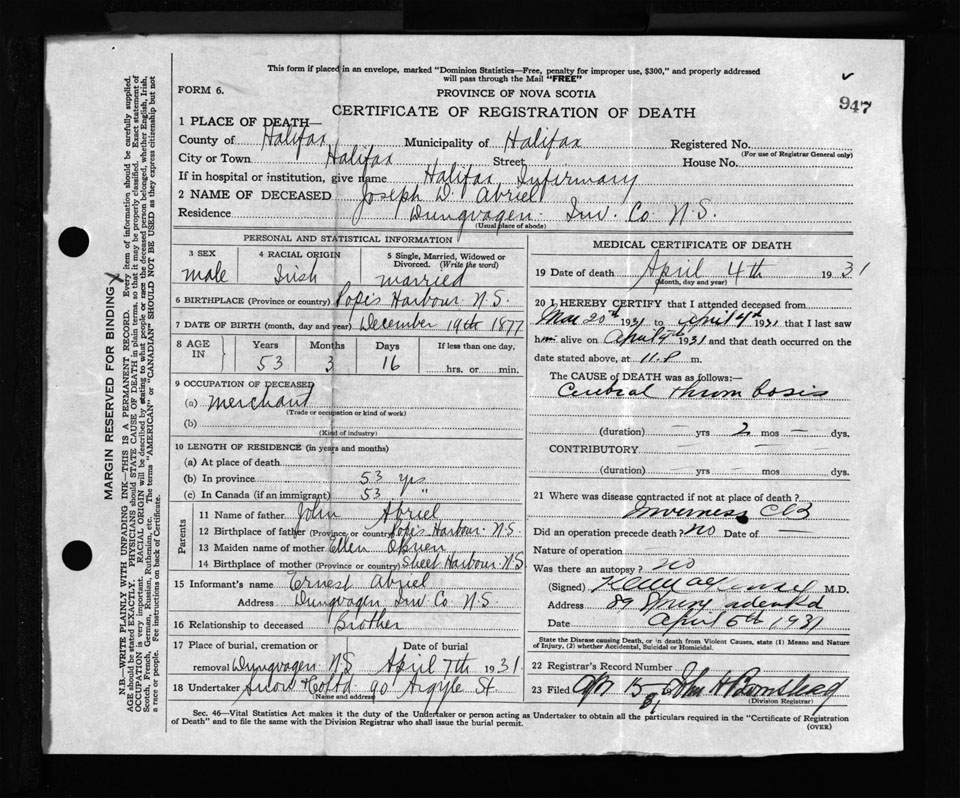 This form if placed in an envelope, marked "Dominion Statistics—Free, penalty for improper use, $300," and properly addressed
will pass through the Mail "FREE"
FORM 6.
PROVINCE OF NOVA SCOTIA
947
CERTIFICATE OF REGISTRATION OF DEATH
1 PLACE OF DEATH—
County of Halifax Municipality of Halifax Registered No.
(For use of Registrar General only)
City or Town Halifax Street House No.
If in hospital or institution, give name Halifax Infirmary
2 NAME OF DECEASED Joseph D. Abriel
Residence Dungvagen Inv. Co. N.S.
(Usual place of abode)
PERSONAL AND STATISTICAL INFORMATION
3 SEX male
4 RACIAL ORIGIN Irish
5 Single, Married, Widowed or Divorced. (Write the word) married
6 BIRTHPLACE (Province or country) Popes Harbour N.S.
7 DATE OF BIRTH (month, day and year) December 19th 1877
8 AGE IN Years Months Days If less than one day,
53 3 16 hrs. or min.
9 OCCUPATION OF DECEASED
(a) merchant
(Trade or occupation or kind of work)
(b)
(Kind of industry)
10 LENGTH OF RESIDENCE (in years and months)
(a) At place of death
(b) In province 53 yrs
(c) In Canada (if an immigrant) 53 "
Parents
11 Name of father John Abriel
12 Birthplace of father (Province or country) Popes Harbour N.S.
13 Maiden name of mother Ellen
14 Birthplace of mother (Province or country) Sheet Harbour N.S
15 Informant's name Ernest Abriel
Address Dungvagen Inv. Co. N.S.
16 Relationship to deceased Brother
17 Place of burial, cremation or Date of burial
removal Dungvagen N.S April 7th 1931
18 Undertaker Snow & Co Ltd 90 Argyle St
Name and address
MEDICAL CERTIFICATE OF DEATH
19 Date of death April 4th 1931
(Month, day and year)
20 I HEREBY CERTIFY that I attended deceased from
Mar 20th 1931 to April 4th 1931 that I last saw
him alive on April 4th 1931 and that death occurred on the
date stated above, at 11.P m.
The CAUSE OF DEATH was as follows:—
Cerebral Thrombosis
(duration) — yrs 2 mos — dys.
CONTRIBUTORY
(duration) — yrs — mos — dys.
21 Where was disease contracted if not at place of death?
Inverness CB
Did an operation precede death? no Date of —
Nature of operation
Was there an autopsy? no
(Signed) M.D.
Address 89
Date April 6th 1931
State the Disease causing Death, or in death from Violent Causes, state (1) Means and Nature
of Injury, (2) whether Accidental, Suicidal or Homicidal.
22 Registrar's Record Number
23 Filed Apr 15 John
(Division Registrar)
Sec. 46—Vital Statistics Act makes it the duty of the Undertaker or person acting as Undertaker to obtain all the particulars required in the "Certificate of Registration
of Death" and to file the same with the Division Registrar who shall issue the burial permit.
(OVER)
MARGIN RESERVED FOR BINDING
N.B.—WRITE PLAINLY WITH UNFADING INK—THIS IS A PERMANENT RECORD. Every item of information should be carefully supplied.
AGE should be stated EXACTLY. PHYSICIANS should STATE CAUSE OF DEATH in plain terms, so that it may be properly classified. Exact statement of
OCCUPATION is very important. RACIAL ORIGIN will be described by stating to what people or race the deceased person belonged, whether English, Irish,
Scotch, French, German, Russian, Ruthenian, etc. The terms "AMERICAN" or "CANADIAN" SHOULD NOT BE USED as they express citizenship but not
a race or people. See instructions on back of Certificate.